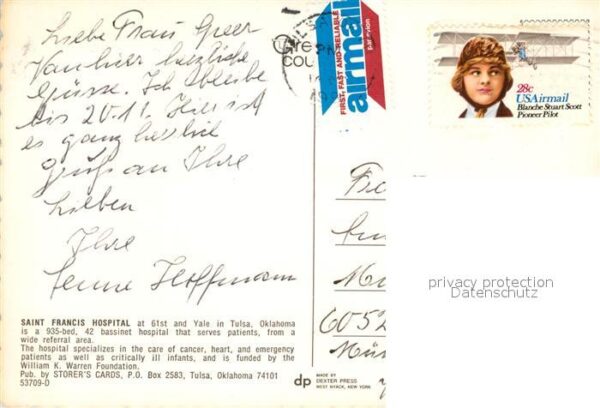 Liebe Frau Greer
Von hier herzliche
Grüsse. Ich bleibe
bis 20.11. Hier ist
es ganz herrlich
Gruß an Ihre
Lieben
Ihre
Hoffmann
SAINT FRANCIS HOSPITAL at 61st and Yale in Tulsa, Oklahoma
is a 935-bed, 42 bassinet hospital that serves patients, from a
wide referral area.
The hospital specializes in the care of cancer, heart, and emergency
patients as well as critically ill infants, and is funded by the
William K. Warren Foundation.
Pub. by STORER'S CARDS, P.O. Box 2583, Tulsa, Oklahoma 74101
53709-D
dp
MADE BY
DEXTER PRESS
WEST NYACK, NEW YORK
PM
COU
FIRST, FAST AND RELIABLE
airmail
par avion
28c
USAirmail
Blanche Stuart Scott
Pioneer Pilot
Fr
Mü
6052
Mün
privacy protection
Datenschutz